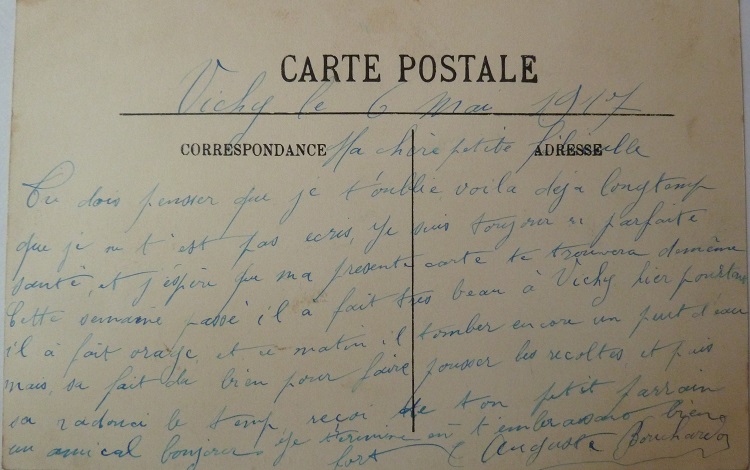 CARTE POSTALE
Vichy le 6 Mai 1917
CORRESPONDANCE ADRESSE
Ma chère petite
Tu dois pensser que je t'oublie, voila deja longtemp
que je ne t'est pas ecris, je suis toujour en parfaite
santé, et j'éspère que ma presente carte te trouvera de même
Cette semaine passé il à fait très beau à Vichy hier pourtant
il à fait orage, et ce matin il tomber encore un peut d'eau
mais, sa fait du bien pour faire pousser les recoltes et puis
sa radouci le temp reçoi de ton petit parrain
un amical bonjour, je termine en t'embrassant bien
fort Auguste Bouchardon